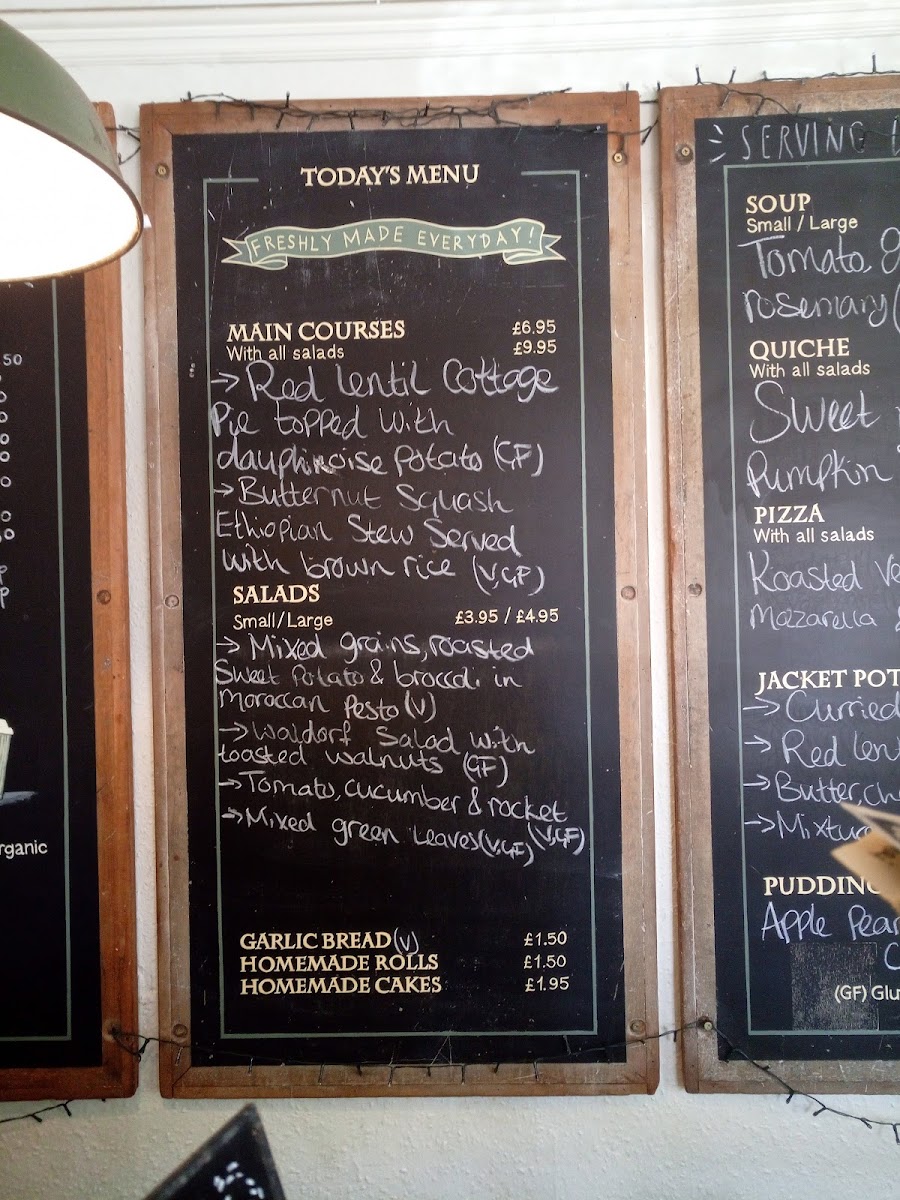 TODAY'S MENU
FRESHLY MADE EVERYDAY!
MAIN COURSES £6.95
With all salads £9.95
→ Red lentil Cottage
Pie topped with
dauphinoise potato (GF)
→ Butternut Squash
Ethiopian Stew Served
with brown rice (V,GF)
SALADS
Small/Large £3.95 / £4.95
→ Mixed grains, roasted
Sweet Potato & broccoli in
Moroccan Pesto (V)
→ Waldorf Salad with
toasted walnuts (GF)
→ Tomato, cucumber & rocket
(V,GF)
→ Mixed green leaves (V,GF)
GARLIC BREAD (V) £1.50
HOMEMADE ROLLS £1.50
HOMEMADE CAKES £1.95
SERVING
SOUP
Small / Large
Tomato,
rosemary
QUICHE
With all salads
Sweet
Pumpkin
PIZZA
With all salads
Roasted
Mozarella
JACKET POT
→ Curried
→ Red lent
→ Butter, ch
→ Mixture
PUDDING
Apple Pear
(GF) Glu
.50
rganic